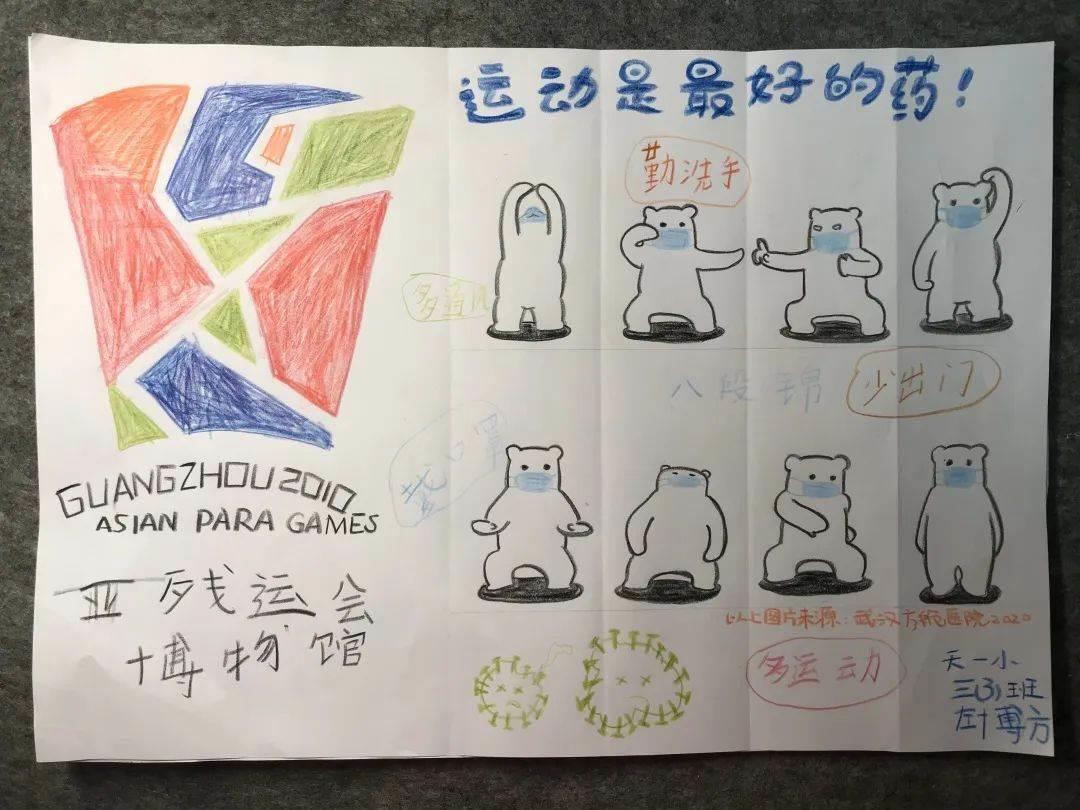 运动是最好的药！
勤洗手
多通风
八段锦
少出门
戴口罩
GUANGZHOU 2010
ASIAN PARA GAMES
亚残运会
博物馆
以上图片来源：武汉方舱医院2020
多运动
天一小
三(3)班
叶博方